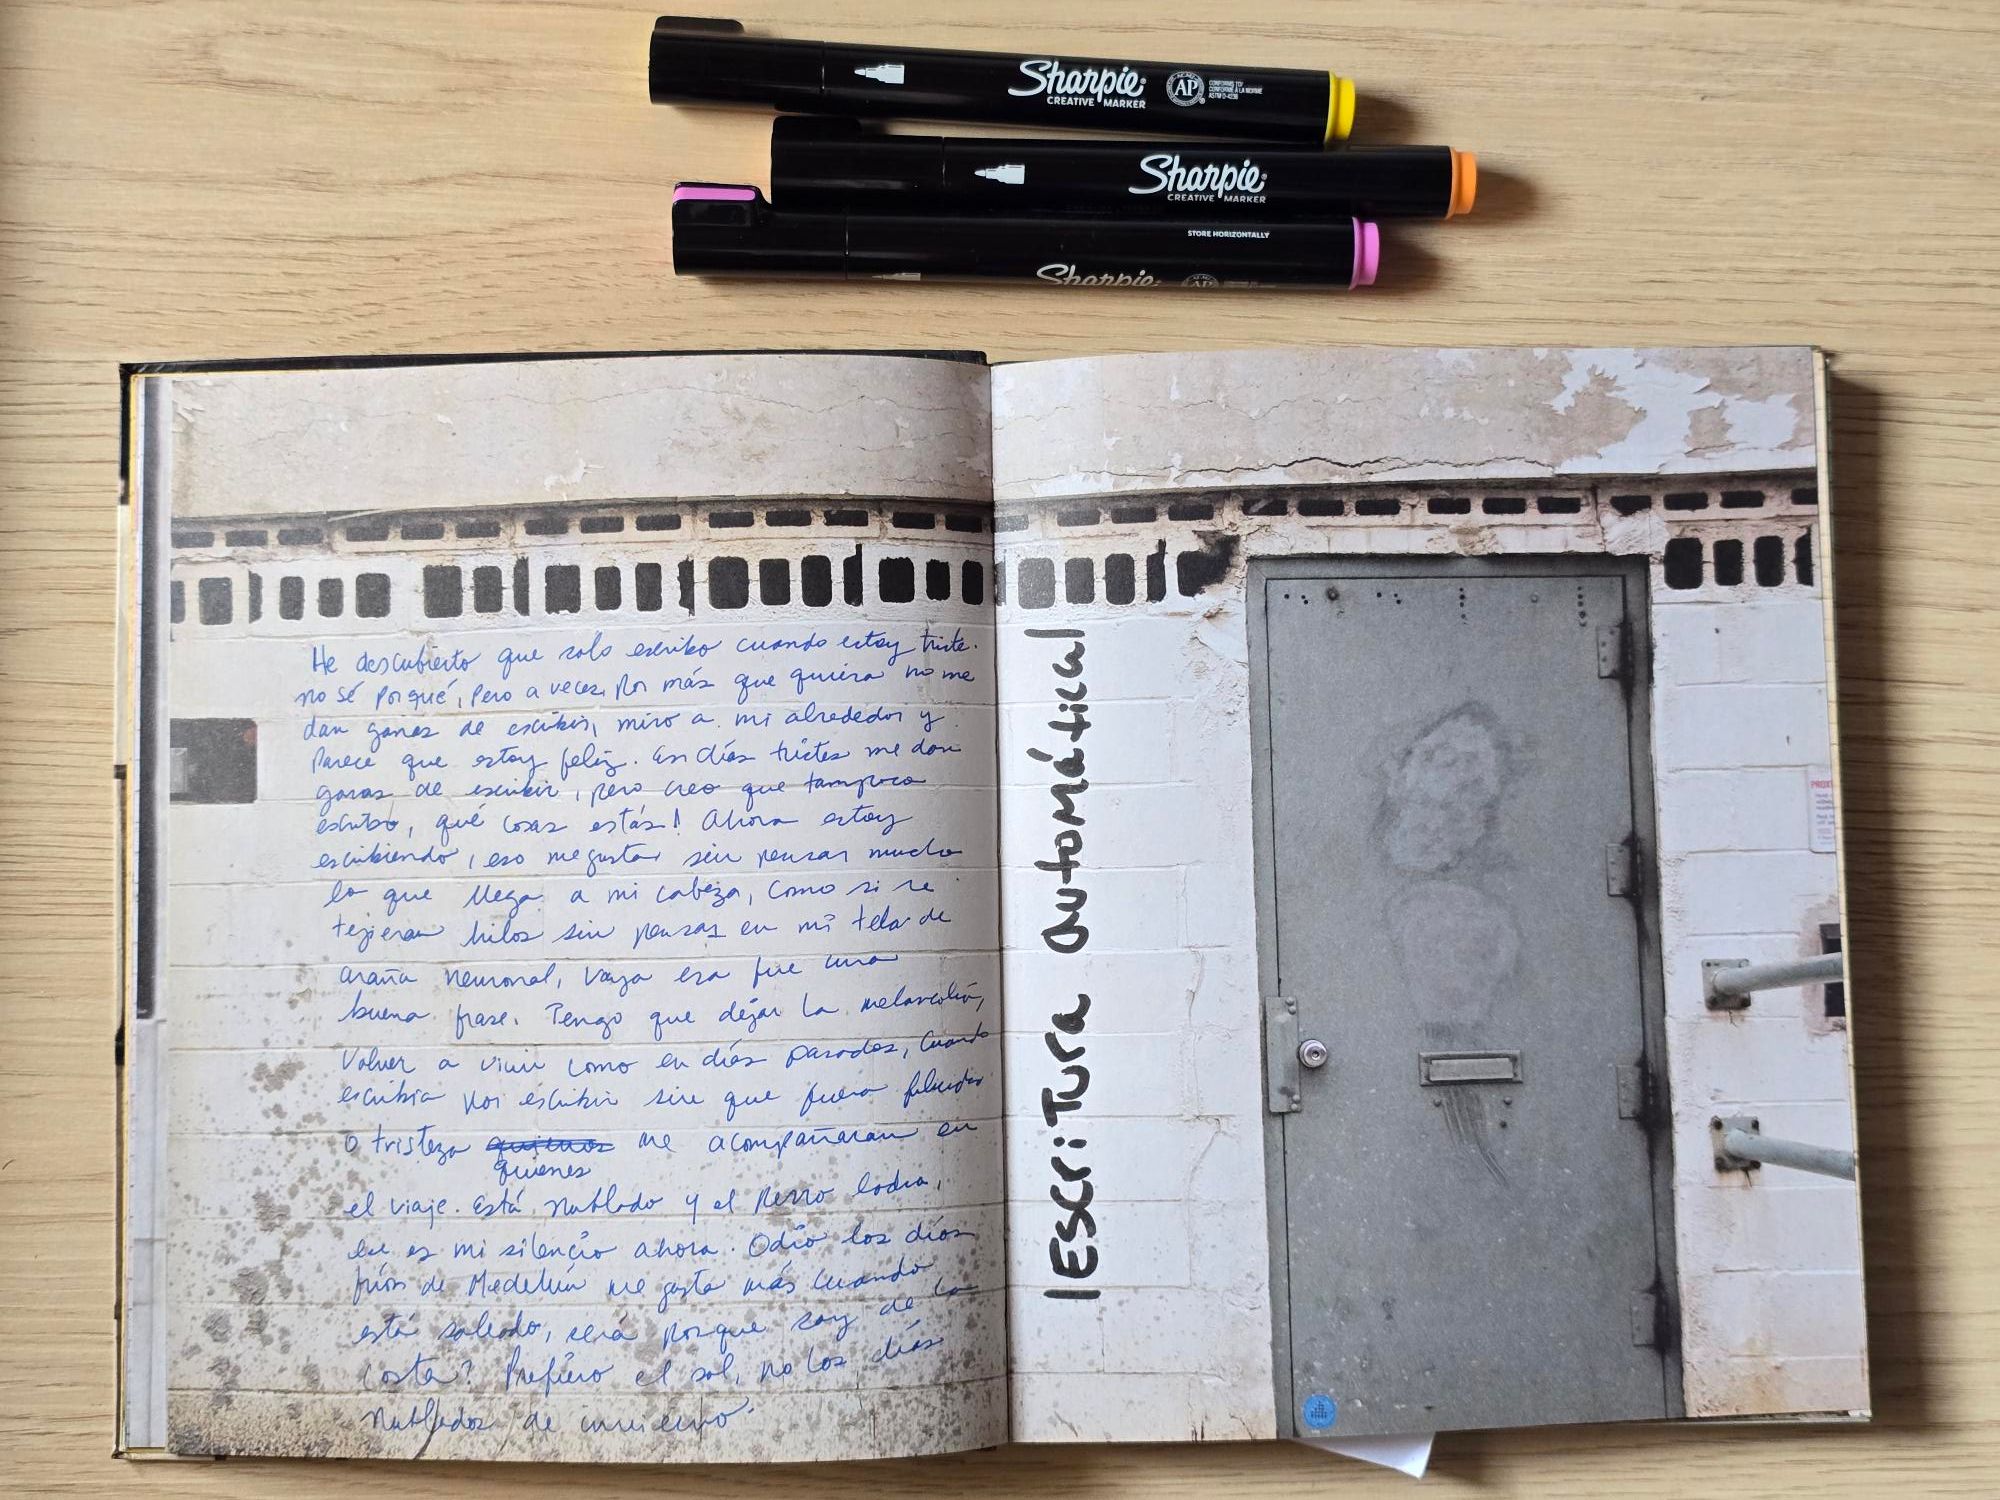 Sharpie
CREATIVE MARKER
AP
CONFORMS TO/
CONFORME À LA NORME
ASTM D-4236
Sharpie
CREATIVE MARKER
STORE HORIZONTALLY
Sharpie
AP
He descubierto que solo escribo cuando estoy triste.
no sé porqué, pero a veces, por más que quiera no me
dan ganas de escribir, miro a mi alrededor y
parece que estoy feliz. En días tristes me dan
ganas de escribir, pero creo que tampoco
escribo, qué cosas estás! Ahora estoy
escribiendo, eso me gusta, sin pensar mucho
lo que llega a mi cabeza, como si se
tejieran hilos sin pensar en mi tela de
araña neuronal, vaya esa fue una
buena frase. Tengo que dejar la melancolía,
volver a vivir como en días pasados, cuando
escribía por escribir sin que fuera felicidad
o tristeza me acompañaran en
quienes
el viaje. Está nublado y el perro ladra,
ese es mi silencio ahora. Odio los días
fríos de Medellín me gusta más cuando
está soleado, será porque soy de la
costa? Prefiero el sol, no los días
nublados de invierno.
¡Escritura Automática!